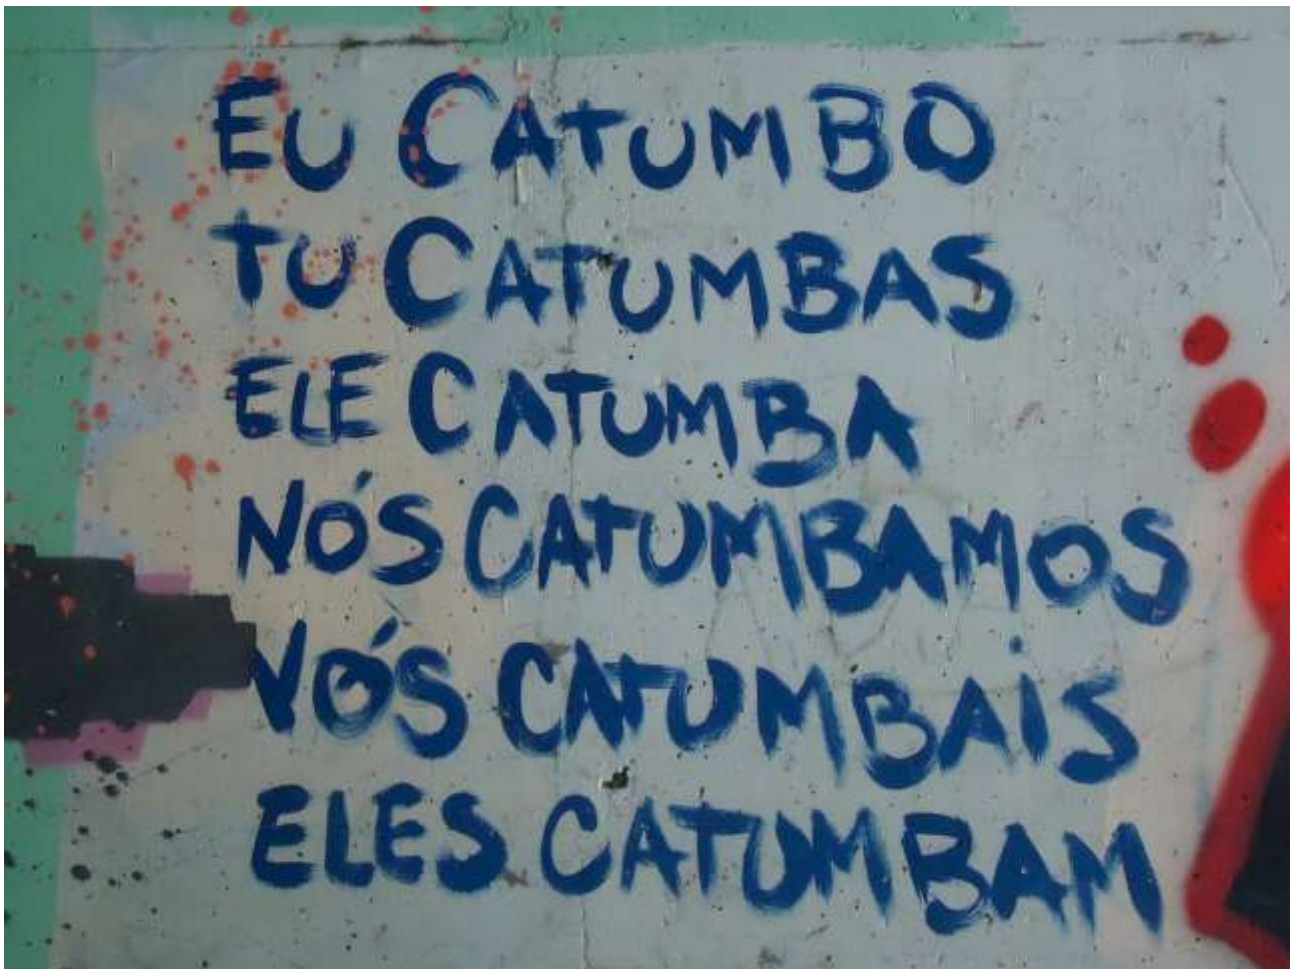 EU CATUMBO
TU CATUMBAS
ELE CATUMBA
NÓS CATUMBAMOS
VÓS CATUMBAiS
ELES CATUMBAM